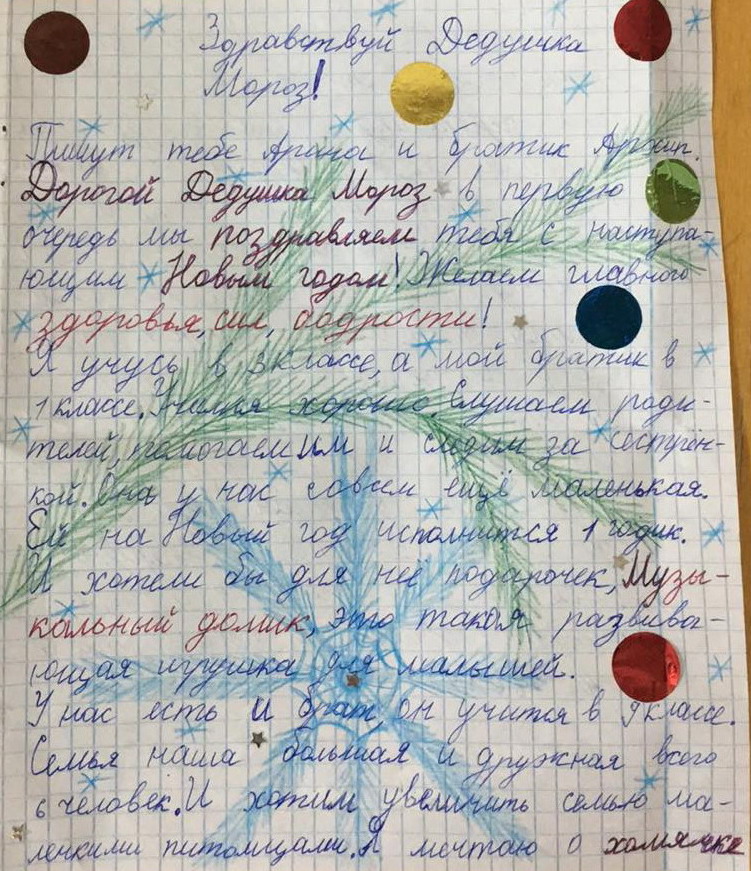 Здравствуй Дедушка
Мороз!
Пишут тебе и братик Архип.
Дорогой Дедушка Мороз в первую
очередь мы поздравляем тебя с наступа-
ющим Новым годом! Желаем главного
здоровья, сил, бодрости!
Я учусь в 3 классе, а мой братик в
1 классе. Учимся хорошо. Слушаем роди-
телей, помогаем им и следим за сестрён-
кой. Она у нас совсем ещё маленькая.
Ей на Новый год исполнится 1 годик.
И хотели бы для неё подарочек, Музы-
кальный домик, это такая развива-
ющая игрушка для малышей.
У нас есть и брат, он учится в 9 классе.
Семья наша большая и дружная всего
6 человек. И хотим увеличить семью ма-
ленкими питомцами. Я мечтаю о хомячке